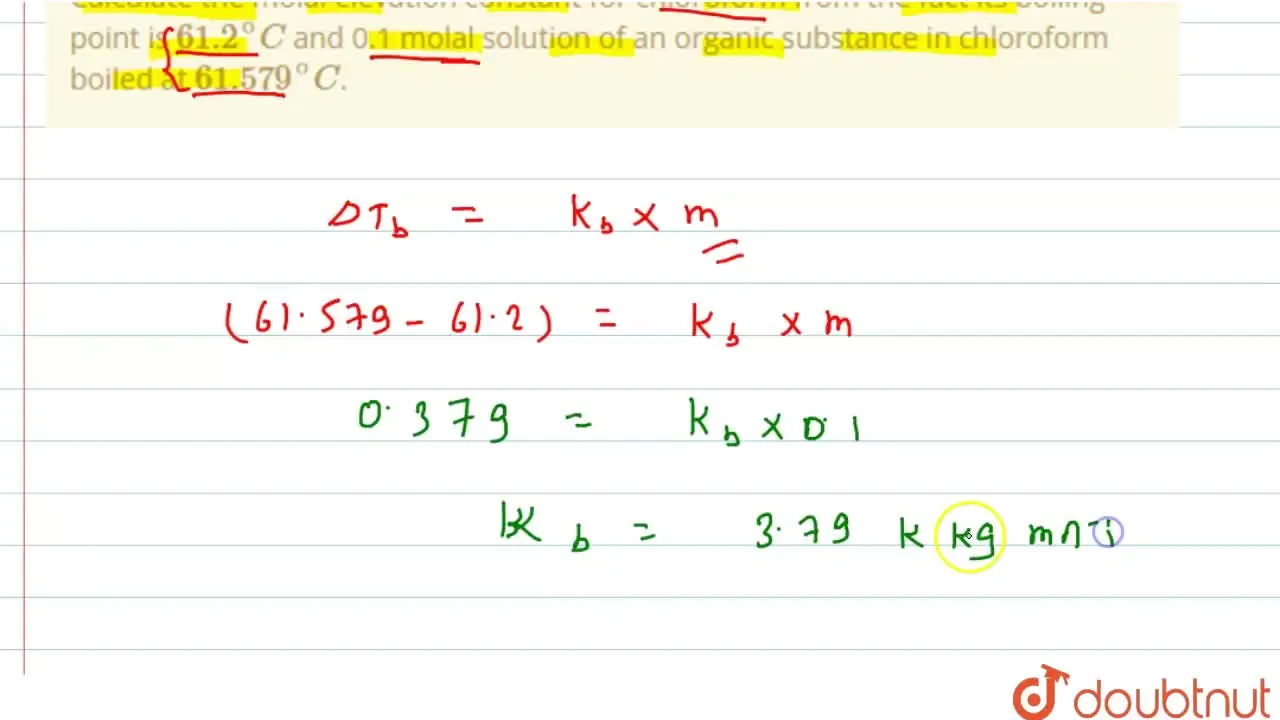 Calculate the molal elevation constant for chloroform from the fact its boiling
point is 61.2°C and 0.1 molal solution of an organic substance in chloroform
boiled at 61.579°C.
ΔTb = Kb × m
(61.579 - 61.2) = Kb × m
0.379 = Kb × 0.1
Kb = 3.79 K kg
doubtnut